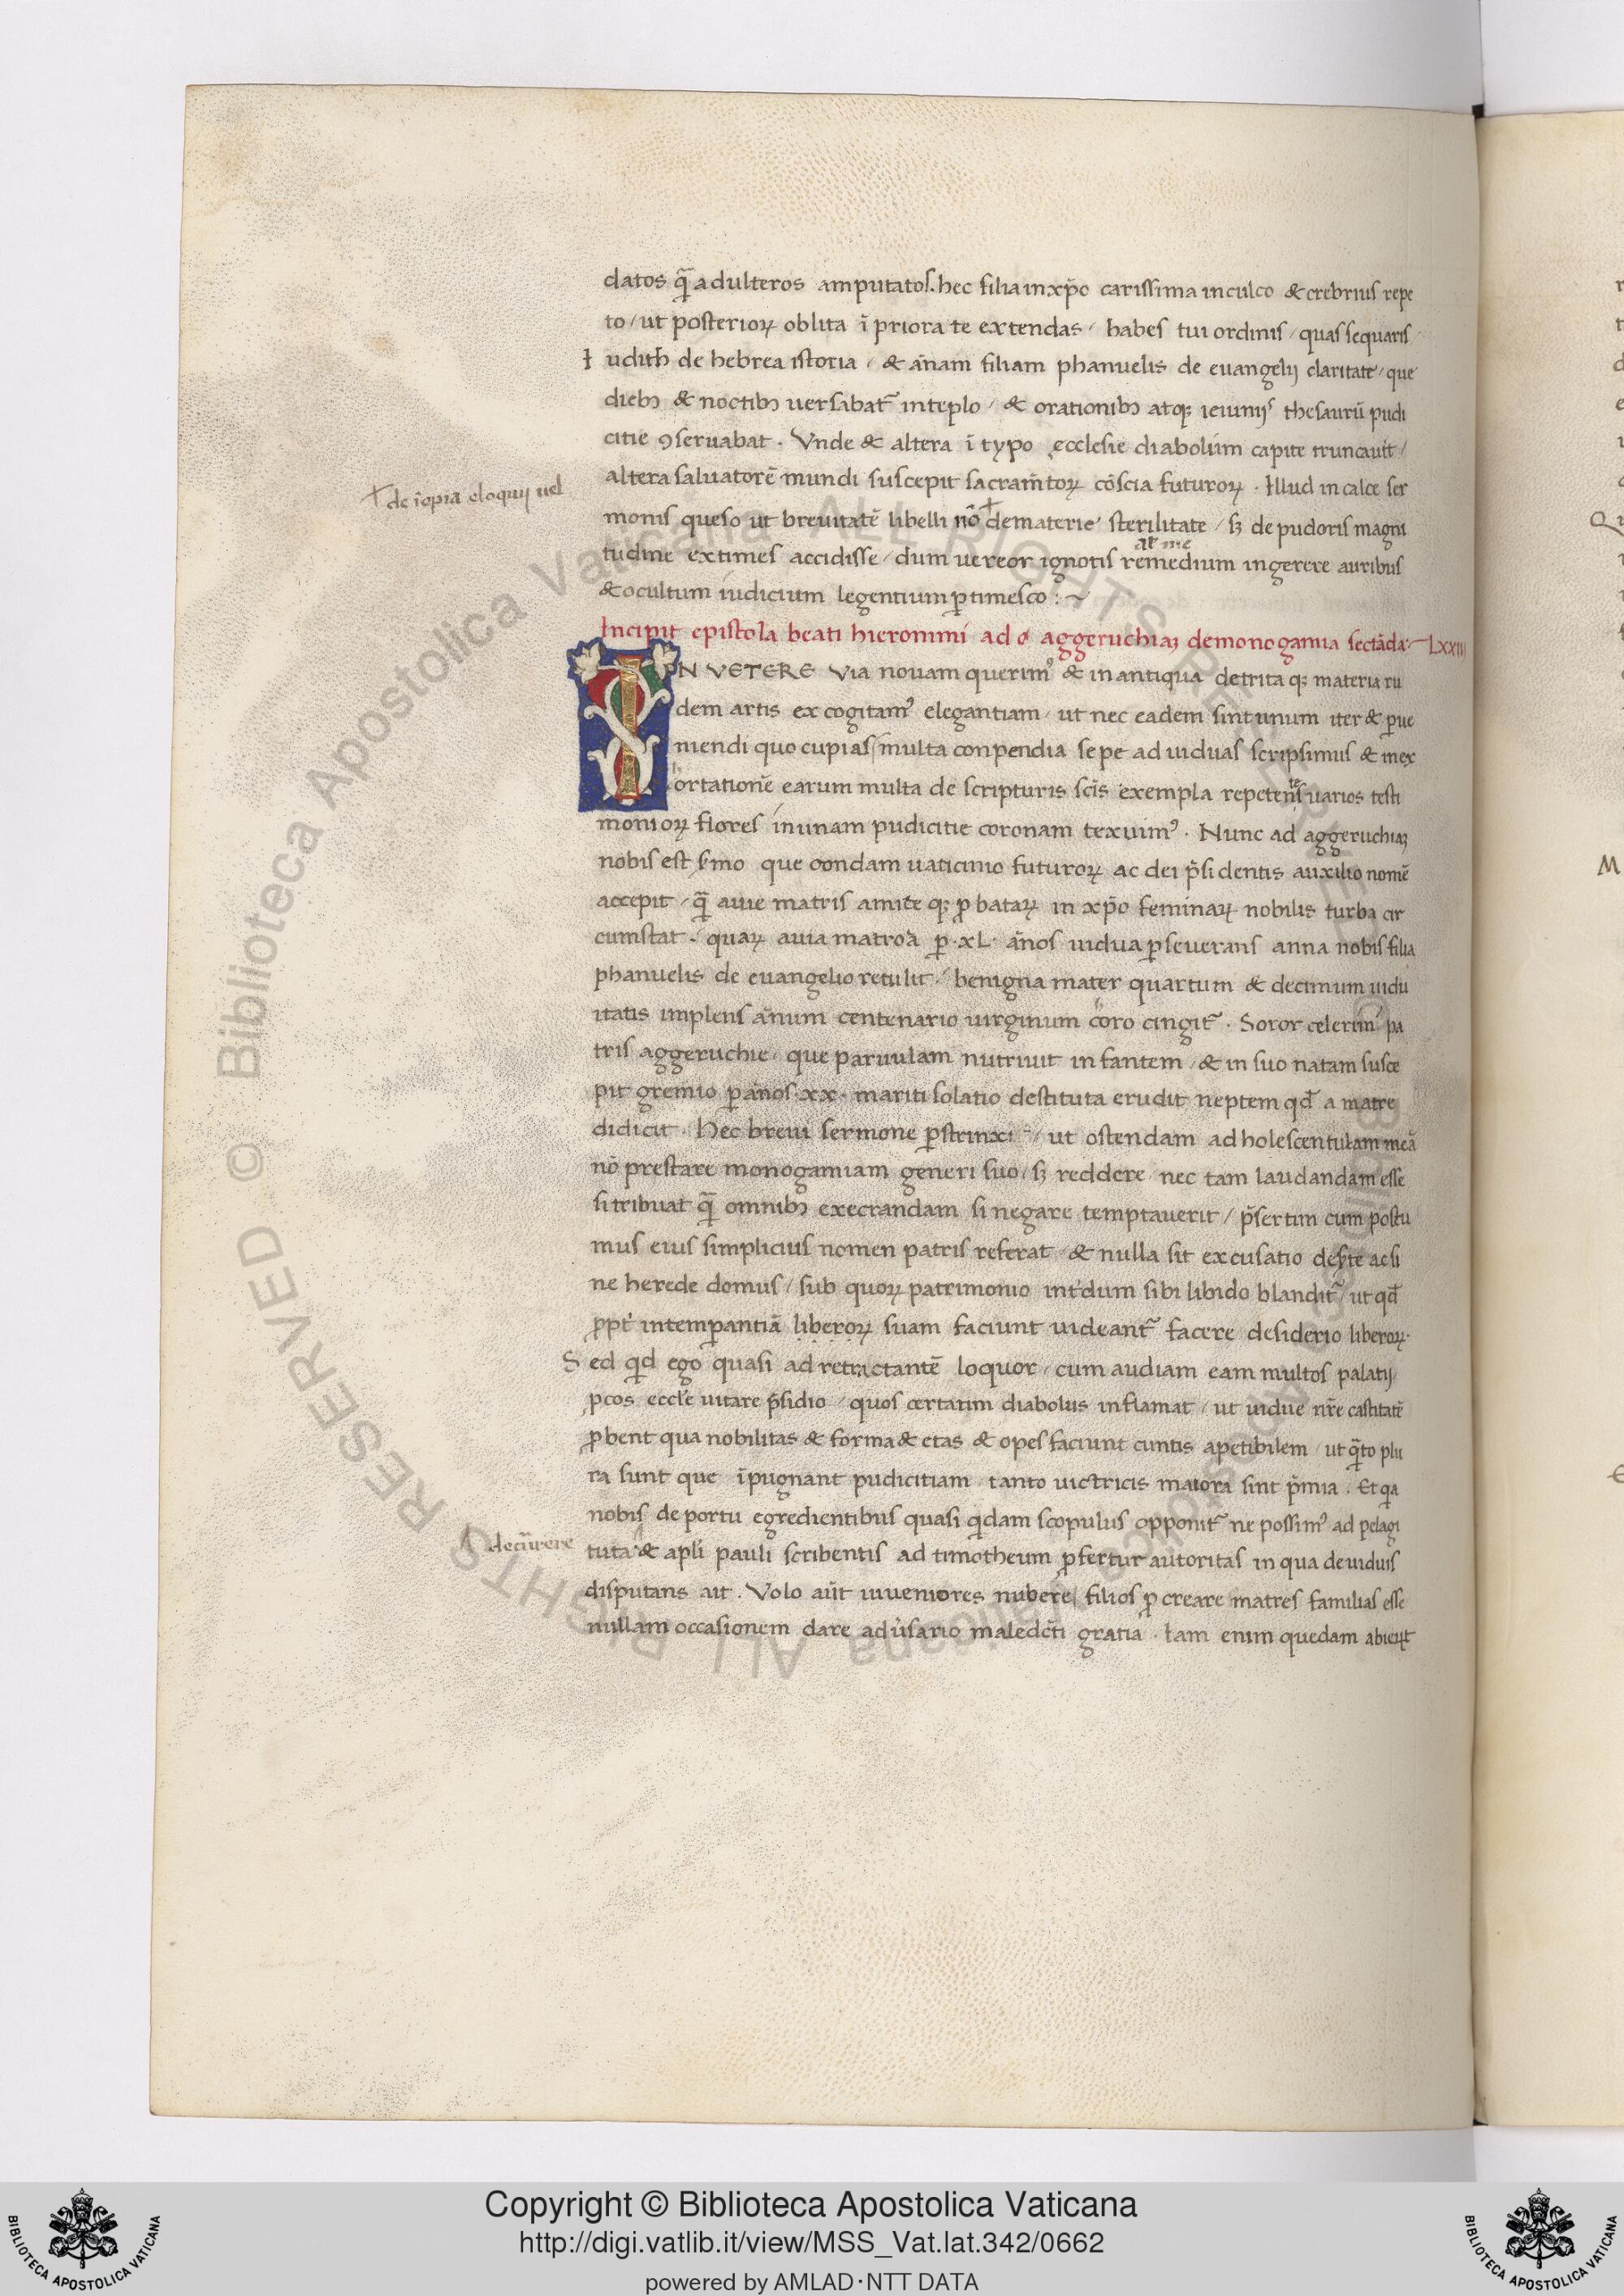 datos q̃ adulteros amputatos. hec filia in xp̄o carissima inculco & crebrius repe
to / ut posterioꝝ oblita ī priora te extendas / habes tui ordinis / quas sequaris /
Iudith de hebrea istoria / & ānam filiam phanuelis de euangelij claritate / que
diebꝫ & noctibꝫ uersabat᷑ in teplo / & orationibꝫ atqꝫ ieiunijs thesaurū pudi
citie ꝯseruabat . Vnde & altera ī typo ecclesie diabolum capite truncauit /
altera saluatorē mundi suscepit sacram̄toꝝ cōscia futuroꝝ . Illud in calce ser
+ de īopia eloquij uel
monis queso ut breuitatē libelli nō + de materie sterilitate / sꝫ de pudoris magni
tudine extimes accidisse / dum uereor ignotis remedium ingerere auribus
& ocultum iudicium legentium ꝑtimesco : ~
Incipit epistola beati hieronimi ad aggeruchiaꝫ de monogamia sectāda LXXIII
IN VETERE Via nouam querimꝰ & in antiqua detrita qꝫ materia ru
dem artis excogitamꝰ elegantiam / ut nec eadem sint unum iter & ꝑue
niendi quo cupias / multa conpendia sepe ad uiduas scripsimus & in ex
ortationē earum multa de scripturis scīs exempla repetentes uarios testi
monioꝝ flores in unam pudicitie coronam texuimꝰ . Nunc ad aggeruchiaꝫ
nobis est s̄mo que oondam uaticinio futuroꝝ ac dei p̄sidentis auxilio nomē
accepit / q̃ auie matris amite qꝫ ꝓbataꝝ in xp̄o feminaꝝ nobilis turba cir
cumstat / quaꝝ auia matrōa ꝑ .XL. ānos uidua ꝑseuerans anna nobis filia
phanuelis de euangelio retulit / benigna mater quartum & decimum uidu
itatis implens ānum centenario uirginum coro cingit᷑ . Soror celerini pa
tris aggeruchie / que paruulam nutriuit infantem / & in suo natam susce
pit gremio ꝑ ānos .xx. mariti solatio destituta erudit neptem qd̄ a matre
didicit . Hec breui sermone ꝑstrinxi / ut ostendam adholescentulam meā
nō prestare monogamiam generi suo / sꝫ reddere / nec tam laudandam esse
si tribuat q̃ omnibꝫ execrandam si negare temptauerit / p̄sertim cum postu
mus eius simplicius nomen patris referat / & nulla sit excusatio dēs̄te ac si
ne herede domus / sub quoꝝ patrimonio int̄dum sibi libido blandit᷑ / ut qd̄
ꝓpt̄ intemꝑantiā liberoꝝ suam faciunt uideant᷑ facere desiderio liberoꝝ .
Sed qd ego quasi ad retractantē loquor / cum audiam eam multos palatij
ꝓcos eccl̄e uitare p̄sidio / quos certatim diabolus inflamat / ut uidue nr̄e castitatē
ꝓbent qua nobilitas & forma & etas & opes faciunt cuntis apetibilem / ut q̃to plu
ra sunt que īpugnant pudicitiam / tanto uictricis maiora sint p̄mia . Et qa
nobis de portu egredientibus quasi qdam scopulus opponit᷑ ne possimꝰ ad pelagi
decūrere
tuta & apl̄i pauli scribentis ad timotheum ꝓfertur autoritas in qua de uiduis
disputans ait . Volo aūt iuueniores nubere / filios ꝓcreare matres familias esse
nullam occasionem dare adūsario maledc̄ti gratia . Iam enim quedam abierūt
© Biblioteca Apostolica Vaticana ALL RIGHTS RESERVED
Copyright © Biblioteca Apostolica Vaticana
http://digi.vatlib.it/view/MSS_Vat.lat.342/0662
powered by AMLAD·NTT DATA
BIBLIOTECA APOSTOLICA VATICANA
BIBLIOTECA APOSTOLICA VATICANA